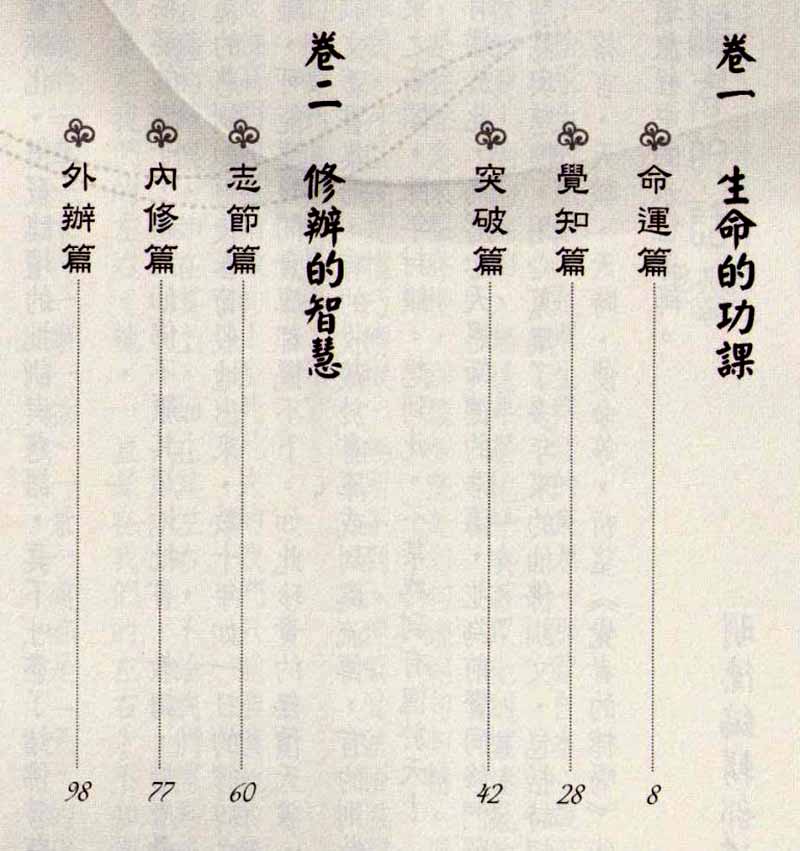 卷一 生命的功課
命運篇 8
覺知篇 28
突破篇 42
卷二 修辦的智慧
志節篇 60
內修篇 77
外辦篇 98